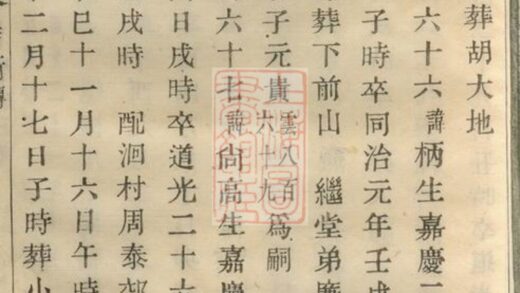 葬胡大地
六十六諱柄生嘉慶二
子時卒同治元年壬戌
葬下前山　繼堂弟廣
子元貴雲八百六十九為嗣
六十七諱尙高生嘉慶
日戌時卒道光二十六
戌時　配洄村周泰
巳十一月十六日午時
二月十七日子時葬小